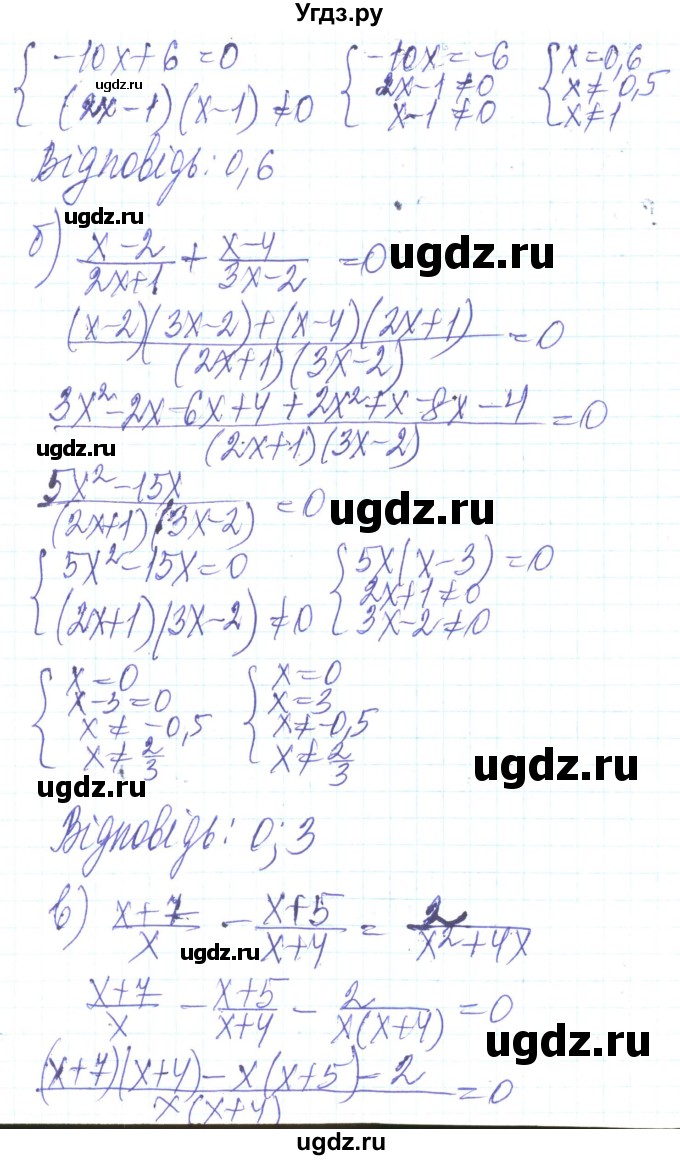 Угдз.ру
{ -10x+6=0   (2x-1)(x-1)≠0   { -10x=-6   2x-1≠0   x-1≠0   { x=0,6   x≠0,5   x≠1
udgz.ru
Відповідь: 0,6
ugdz.ru
б) (x-2)/(2x+1) + (x-4)/(3x-2) =0
ugdz.ru
((x-2)(3x-2)+(x-4)(2x+1))/((2x+1)(3x-2)) =0
(3x²-2x-6x+4+2x²+x-8x-4)/((2x+1)(3x-2)) =0
ugdz.ru
(5x²-15x)/((2x+1)(3x-2)) =0
ugdz.ru
{ 5x²-15x=0   (2x+1)(3x-2)≠0   { 5x(x-3)=0   2x+1≠0   3x-2≠0
{ x=0   x-3=0   x≠-0,5   x≠2/3   { x=0   x=3   x≠-0,5   x≠2/3
ugdz.ru
ugdz.ru
Відповідь: 0; 3
в) (x+7)/x - (x+5)/(x+4) = 2/(x²+4x)
ugdz.ru
(x+7)/x - (x+5)/(x+4) - 2/(x(x+4)) =0
ugdz.ru
((x+7)(x+4)-x(x+5)-2)/(x(x+4)) =0
ugdz.ru